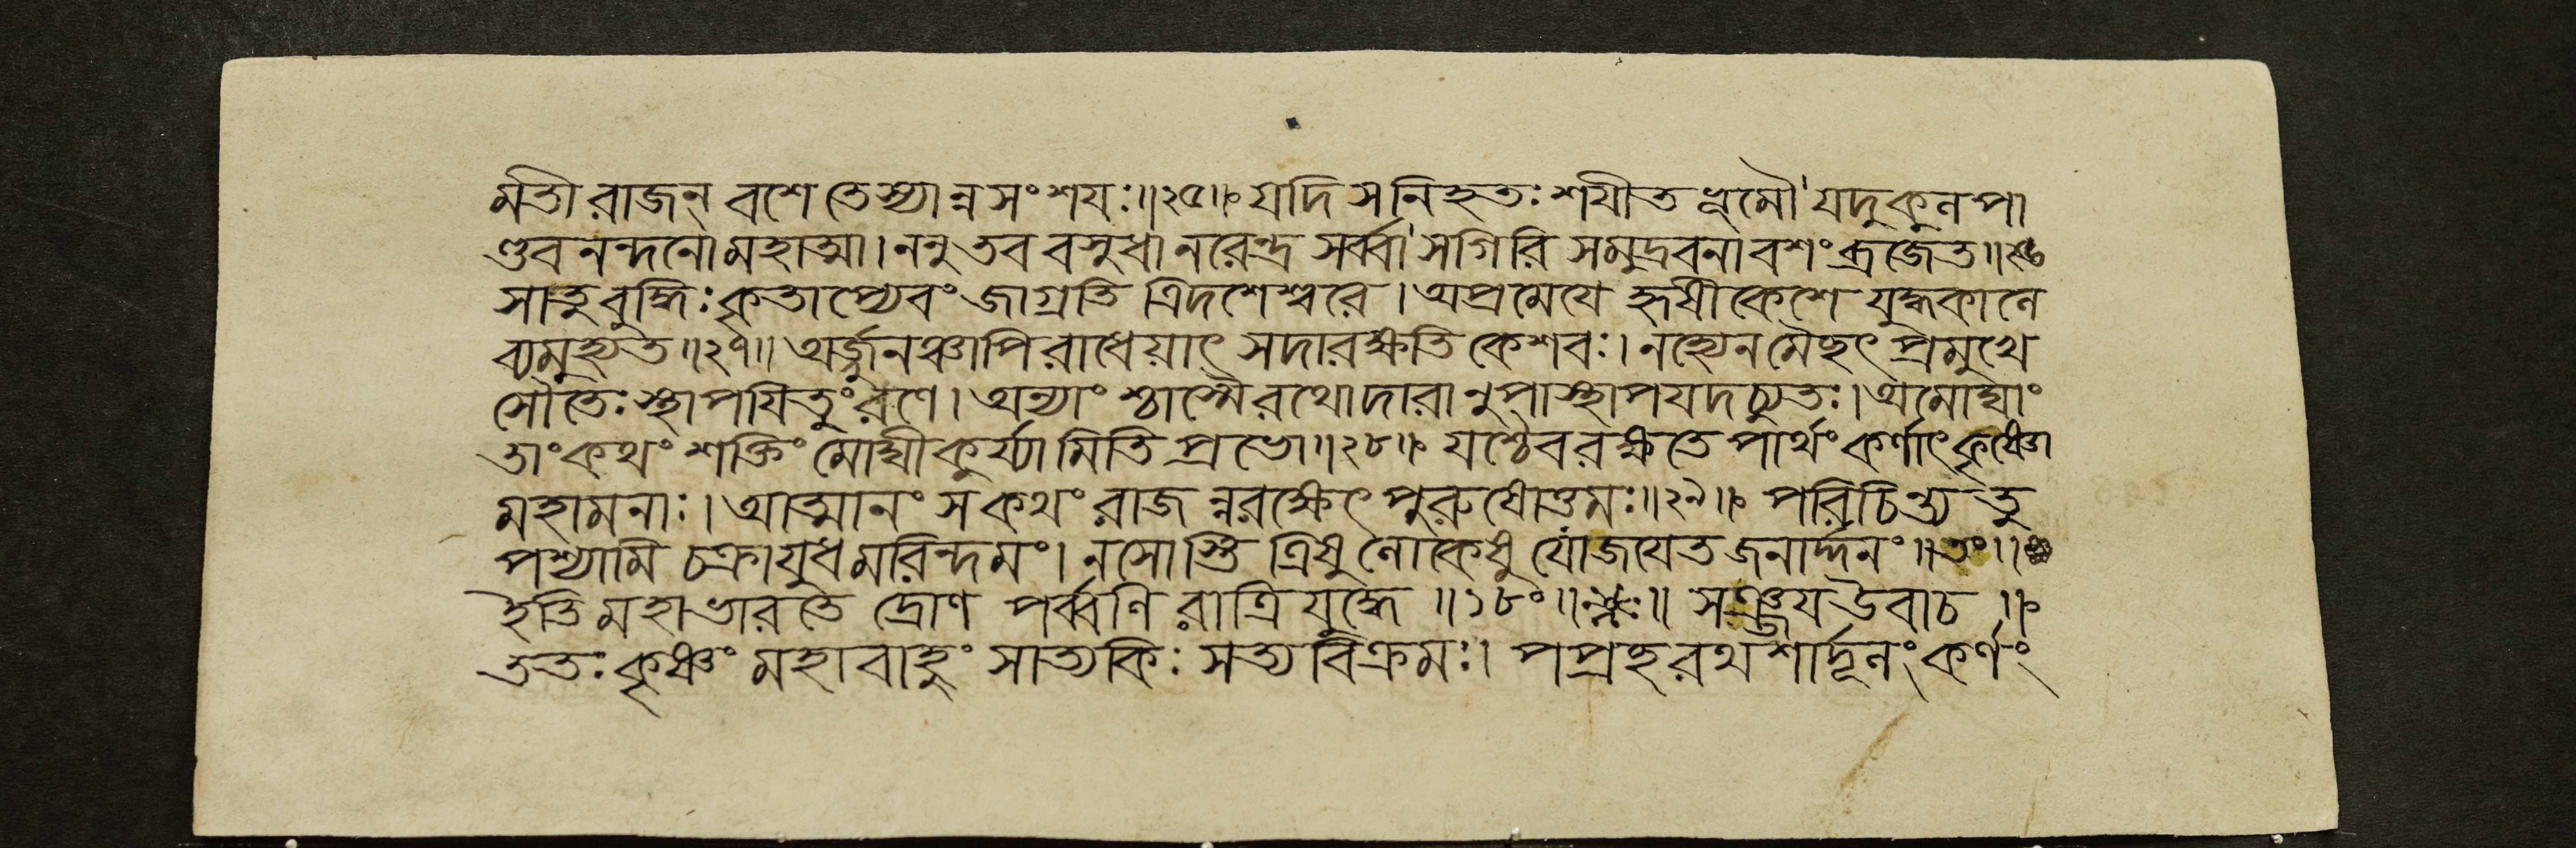 র্মতী রাজন্ বশে তে স্যান্ন সংশযঃ॥২৫॥ যদি স নিহতঃ শযীত ভূমৌ যদুকুলপা
ণ্ডবনন্দনো মহাত্মা। ননু তব বসুধা নরেন্দ্র সর্ব্বা সগিরি সমুদ্রবনা বশং ব্রজেত॥২৬
সা তু বুদ্ধিঃ কৃতাপ্যেবং জাগ্রতি ত্রিদশেশ্বরে। অপ্রমেযে হৃষীকেশে যুদ্ধকালে
ব্যমুহ্যত॥২৭॥ অর্জ্জুনঞ্চাপি রাধেয়াৎ সদা রক্ষতি কেশবঃ। ন হ্যেনমৈছৎ প্রমুখে
সৌতেঃ স্থাপযিতুং রণে। অন্যাংশ্চাস্মৈ রথোদারানুপাস্থাপযদচ্যুতঃ। অমোঘাং
তাং কথং শক্তিং মোঘীকুর্য্যামিতি প্রভো॥২৮॥ যশ্চৈব রক্ষতে পার্থং কর্ণাৎ কৃষ্ণো
মহামনাঃ। আত্মানং স কথং রাজন্ন রক্ষেৎ পুরুষোত্তমঃ॥২৯॥ পরিচিন্ত্য তু
পশ্যামি চক্রাযুধমরিন্দমং। ন সোস্তি ত্রিষু লোকেষু যো জযেত জনার্দ্দনং॥৩০॥
ইতি মহাভারতে দ্রোণ পর্ব্বণি রাত্রিযুদ্ধে॥১৮০॥ সঞ্জয উবাচ॥
ততঃ কৃষ্ণং মহাবাহুং সাত্যকিঃ সত্যবিক্রমঃ। পপ্রছ রথশার্দ্দূলং কর্ণং